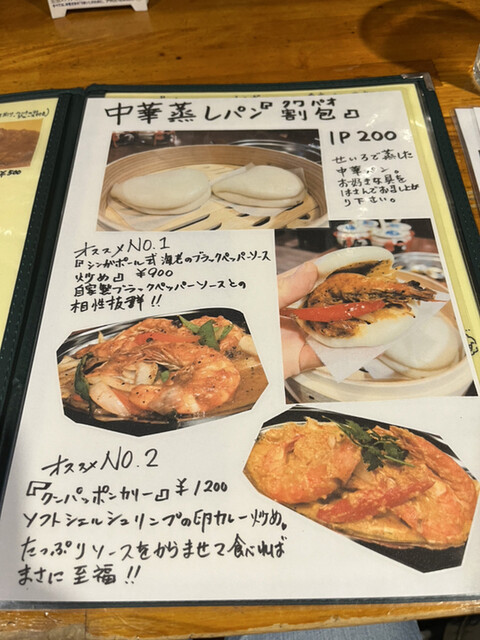 中華蒸しパン『割包』
クワパオ
1P 200
せいろで蒸した
中華パン。
お好きな具を
はさんでお召し上が
り下さい。
オススメNO.1
『シンガポール式 海老のブラックペッパーソース
炒め』 ¥900
自家製ブラックペッパーソースとの
相性抜群!!
オススメ NO.2
『クーンパッポンカリー』¥1200
ソフトシェルシュリンプの卵カレー炒め。
たっぷりソースをからませて食べれば
まさに至福!!
¥500